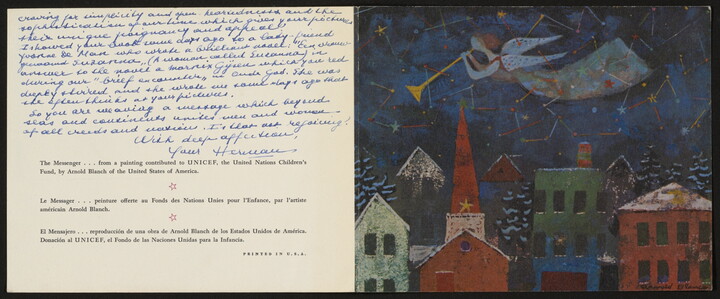 craving for simplicity and open-heartedness and the
sophistication of our time which gives your pictures
their unique poignancy and appeal!
I showed your book some days ago to a lady-friend
Yvonne De Man who wrote a brilliant novel: "Een vrouw
genaamd Suzanna, (A woman called Suzanna) in
answer to the novel a Marnix Gijsen which you red
during our "brief encounter" in Oude God. She was
deeply stirred and she wrote me some days ago that
she often thinks at your pictures.
So you are weaving a message which beyond
seas and continents unites men and women
of all creeds and nations. Is that not rejoicing!
With deep affection,
Your Herman
The Messenger . . . from a painting contributed to UNICEF, the United Nations Children's
Fund, by Arnold Blanch of the United States of America.
Le Messager . . . peinture offerte au Fonds des Nations Unies pour l'Enfance, par l'artiste
américain Arnold Blanch.
El Mensajero . . . reproducción de una obra de Arnold Blanch de los Estados Unidos de América.
Donación al UNICEF, el Fondo de las Naciones Unidas para la Infancia.
PRINTED IN U.S.A.
Arnold Blanch